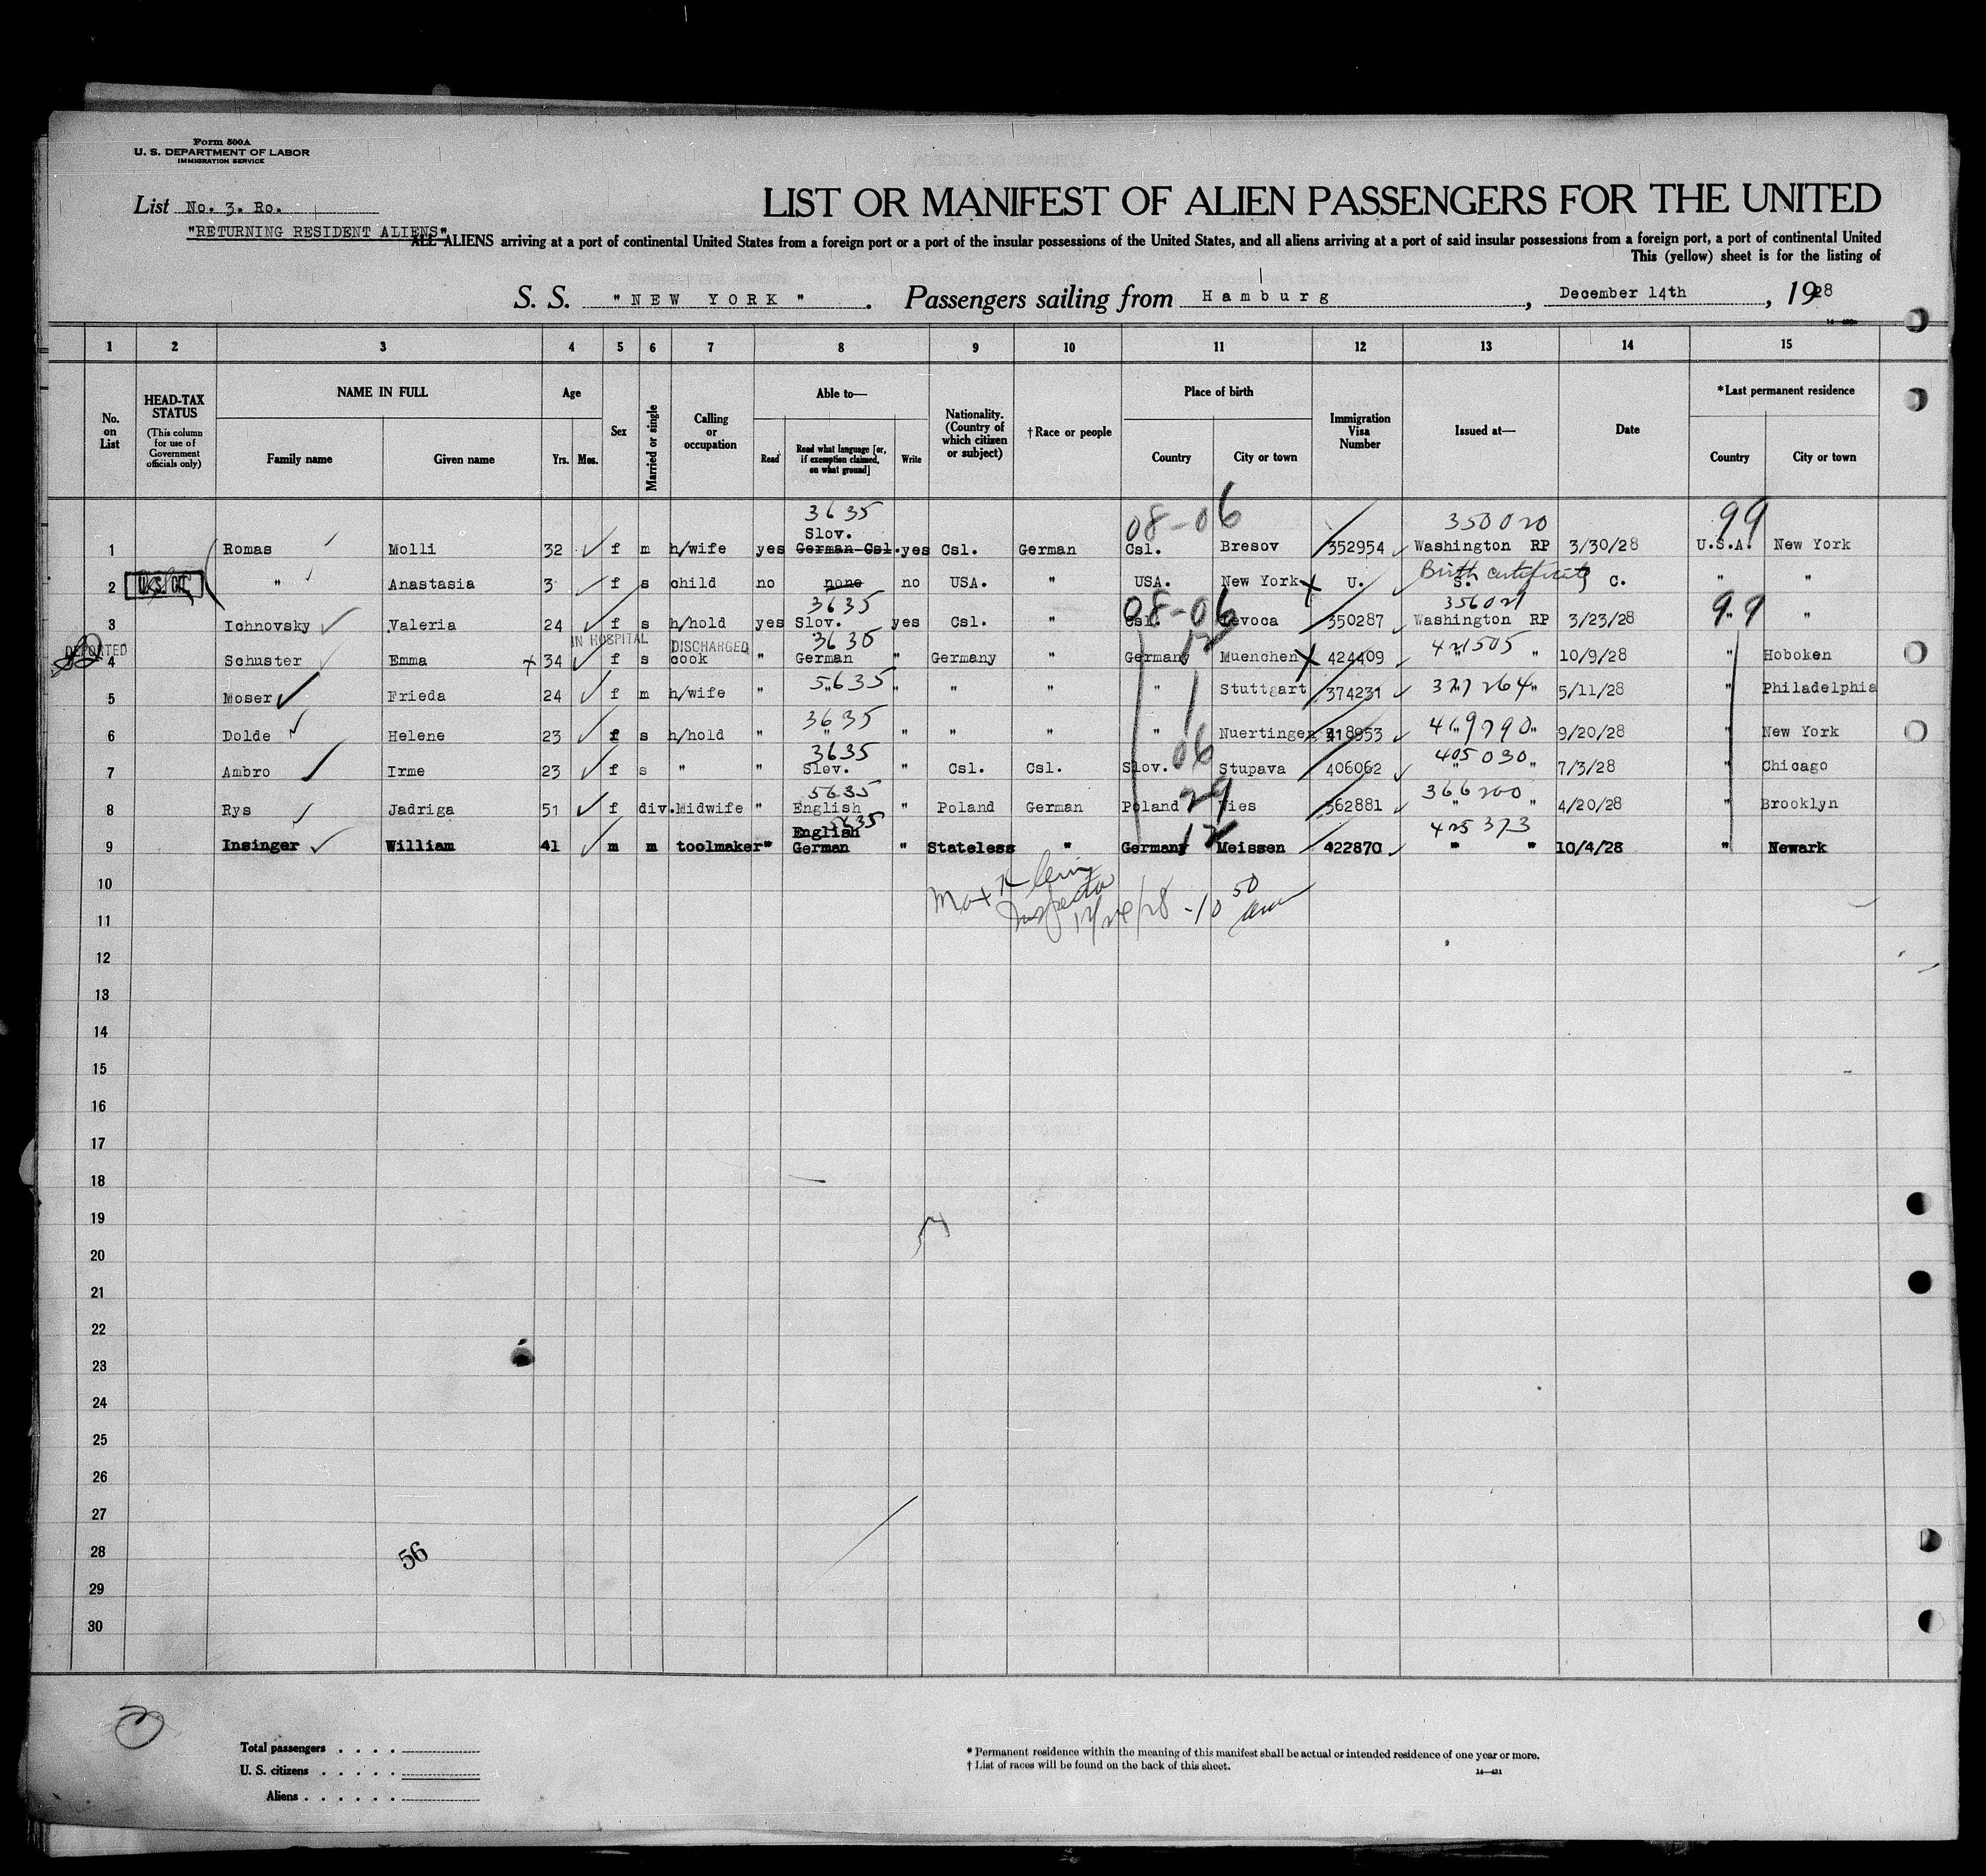 Form 500A
U. S. DEPARTMENT OF LABOR
IMMIGRATION SERVICE
List No. 3. Ro.
LIST OR MANIFEST OF ALIEN PASSENGERS FOR THE UNITED
"RETURNING RESIDENT ALIENS"
ALL ALIENS arriving at a port of continental United States from a foreign port or a port of the insular possessions of the United States, and all aliens arriving at a port of said insular possessions from a foreign port, a port of continental United
This (yellow) sheet is for the listing of
S. S. "NEW YORK". Passengers sailing from Hamburg, December 14th, 1928
1 2 3 4 5 6 7 8 9 10 11 12 13 14 15
No. on List
HEAD-TAX STATUS
(This column for use of Government officials only)
NAME IN FULL
Family name Given name
Age
Yrs. Mos.
Sex
Married or single
Calling or occupation
Able to—
Read
Read what language [or, if exemption claimed, on what ground]
Write
Nationality. (Country of which citizen or subject)
†Race or people
Place of birth
Country City or town
Immigration Visa Number
Issued at—
Date
*Last permanent residence
Country City or town
3635 08-06 350020 99
Slov.
1 Romas Molli 32 f m h/wife yes German-Csl. yes Csl. German Csl. Bresov 352954 Washington RP 3/30/28 U.S.A. New York
Birth certificate
2 " Anastasia 3 f s child no none no USA. " USA. New York U. S. C. " "
3635 08-06 99
3 Ichnovsky Valeria 24 f s h/hold yes Slov. yes Csl. " Csl. 350287 Washington RP 3/23/28 " "
DEPORTED IN HOSPITAL DISCHARGED 3630 12
4 Schuster Emma 34 f s cook " German " Germany " Germany Muenchen 424409 " " 10/9/28 " Hoboken
5635 377264
5 Moser Frieda 24 f m h/wife " " " " " " Stuttgart 374231 " " 5/11/28 " Philadelphia
3635
6 Dolde Helene 23 f s h/hold " " " " " " Nuertingen 418953 " " 9/20/28 " New York
3635 06 405030
7 Ambro Irme 23 f s " " Slov. " Csl. Csl. Slov. Stupava 406062 " " 7/3/28 " Chicago
5635 29 366200
8 Rys Jadriga 51 f div. Midwife " English " Poland German Poland 362881 " " 4/20/28 " Brooklyn
English 5635 12 425373
9 Insinger William 41 m m toolmaker " German " Stateless " Germany Meissen 422870 " " 10/4/28 " Newark
10
Max Klein
Inspector
12/24/28 - 10 50 am
11
12
13
14
15
16
17
18
19
20
21
22
23
24
25
26
27
28
56
29
30
Total passengers
U. S. citizens
Aliens
* Permanent residence within the meaning of this manifest shall be actual or intended residence of one year or more.
† List of races will be found on the back of this sheet.
14—431